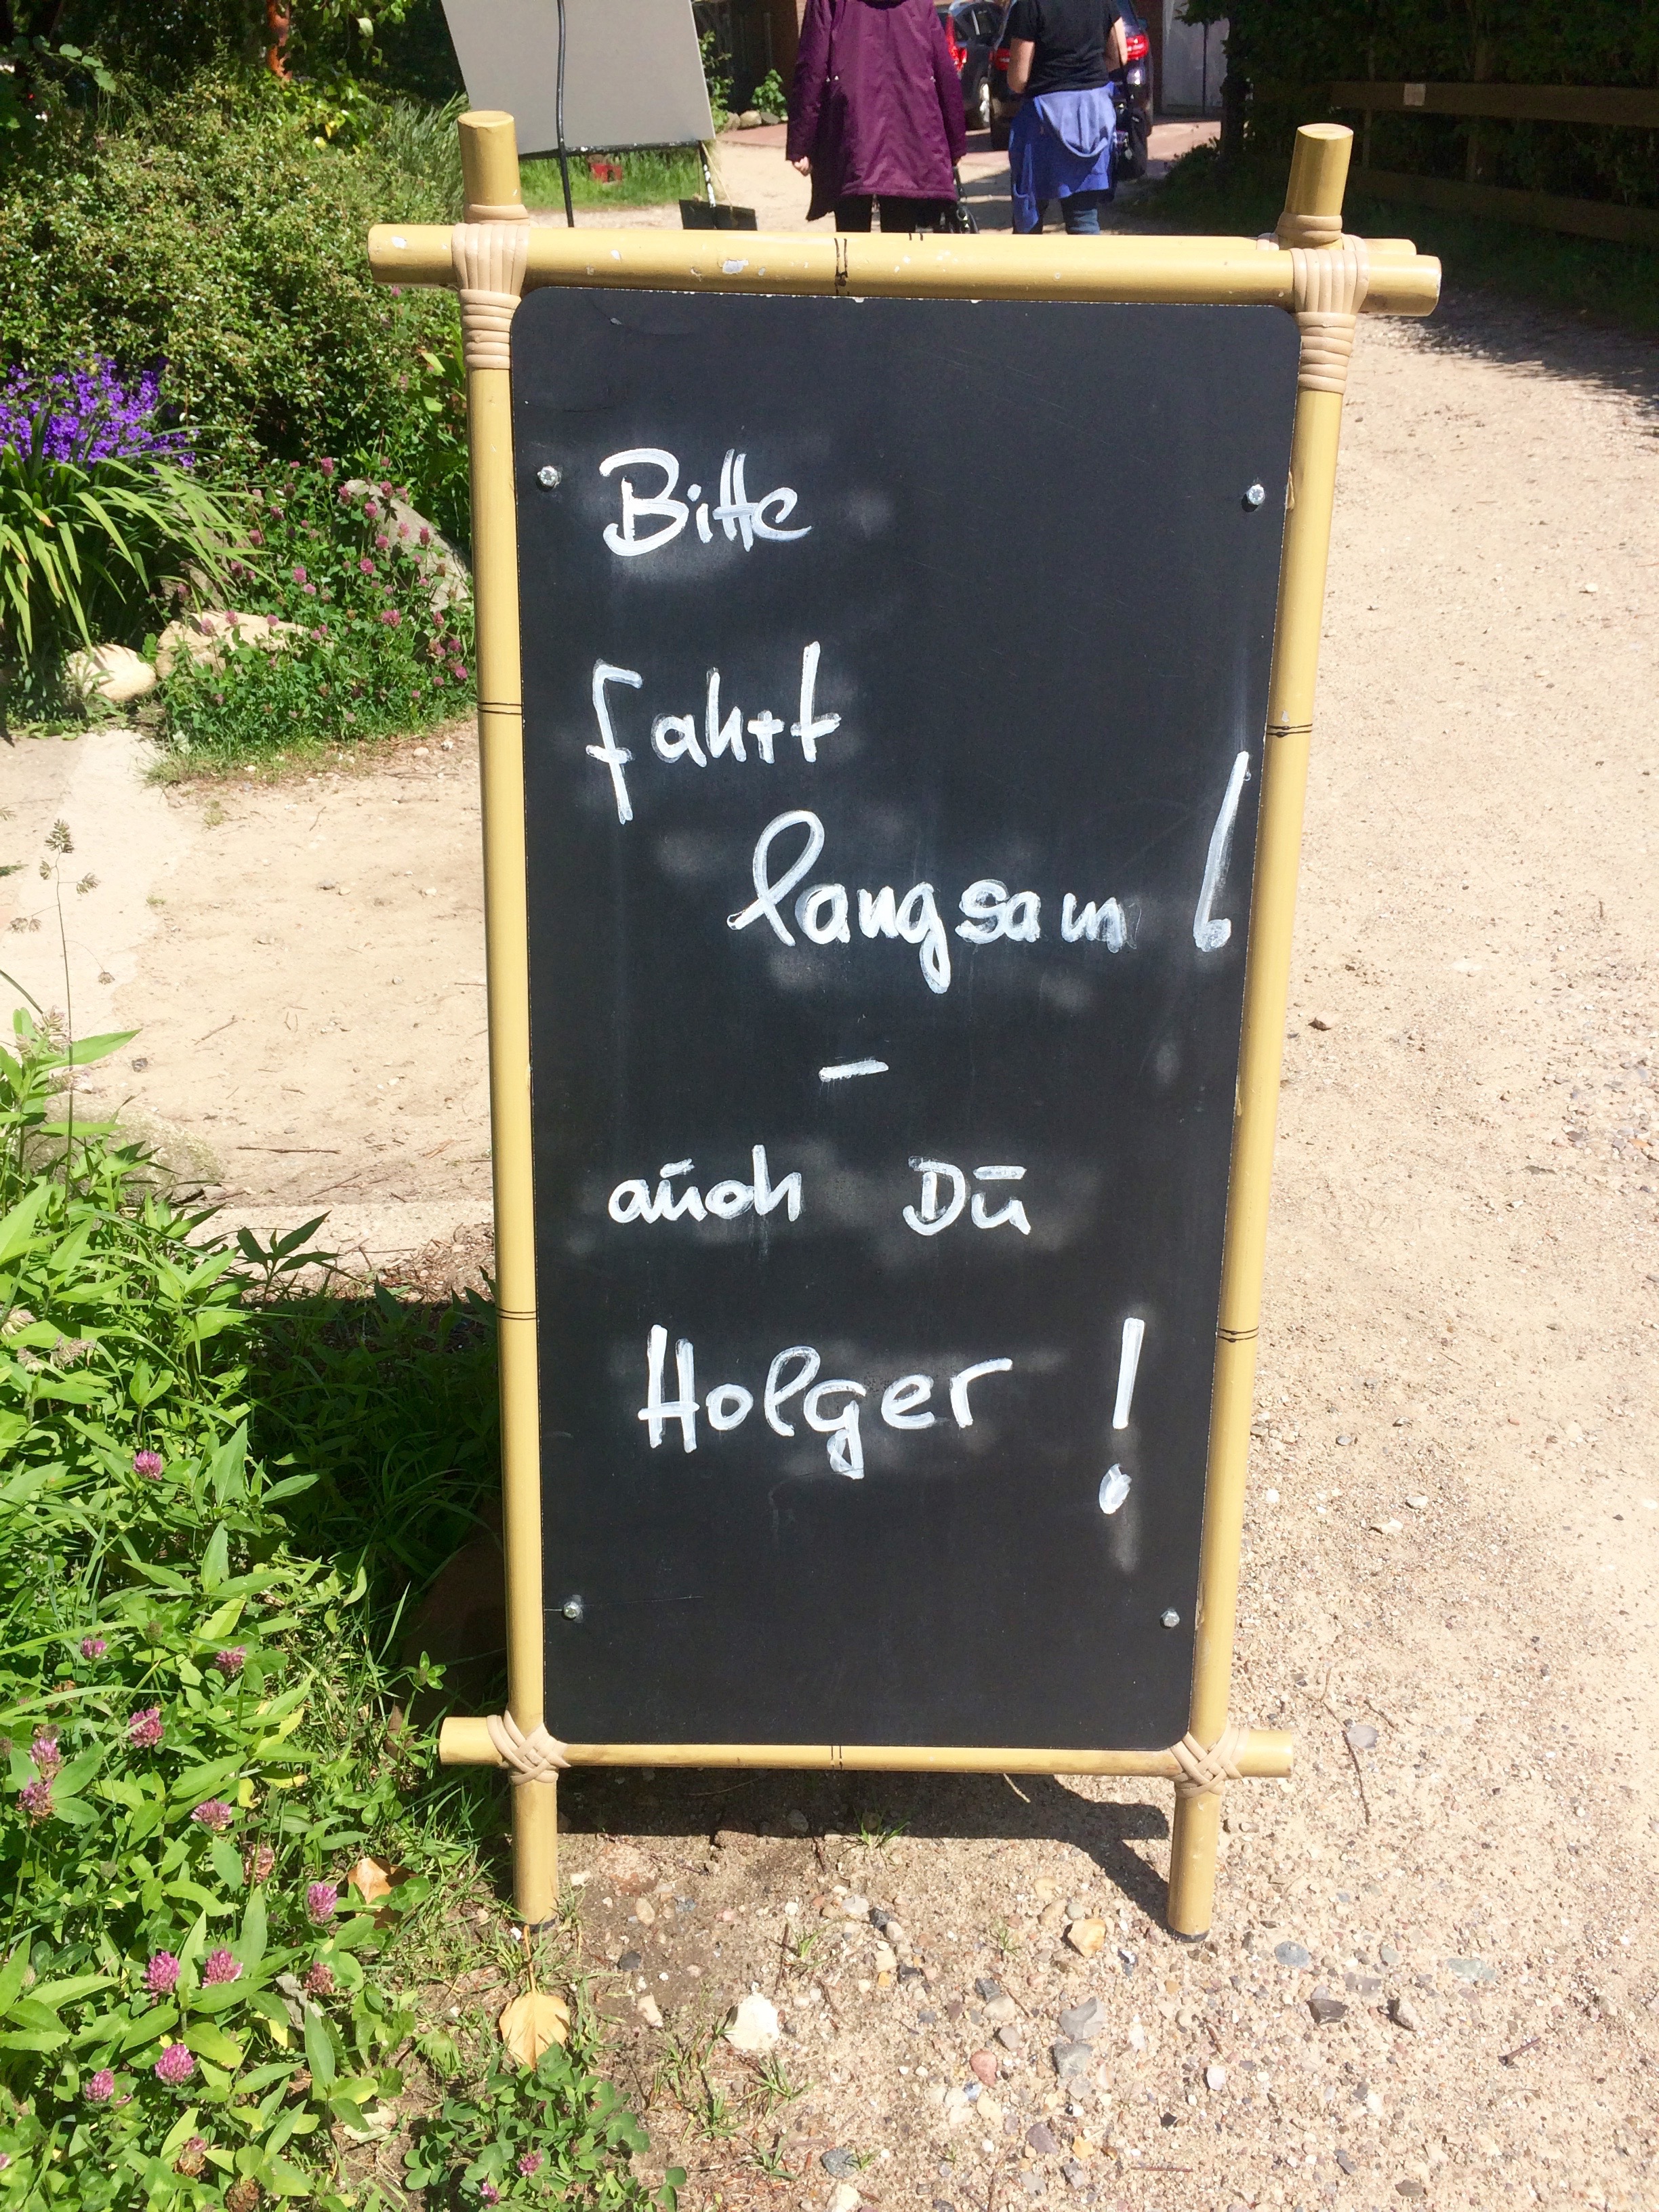 Bitte
fahrt
langsam !
-
auch Du
Holger !